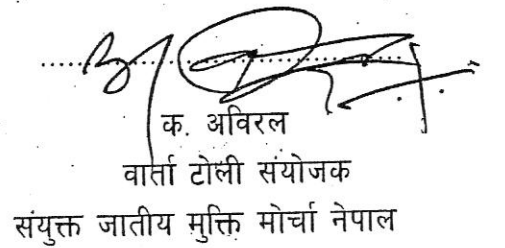 क. अविरल
वार्ता टोली संयोजक
संयुक्त जातीय मुक्ति मोर्चा नेपाल